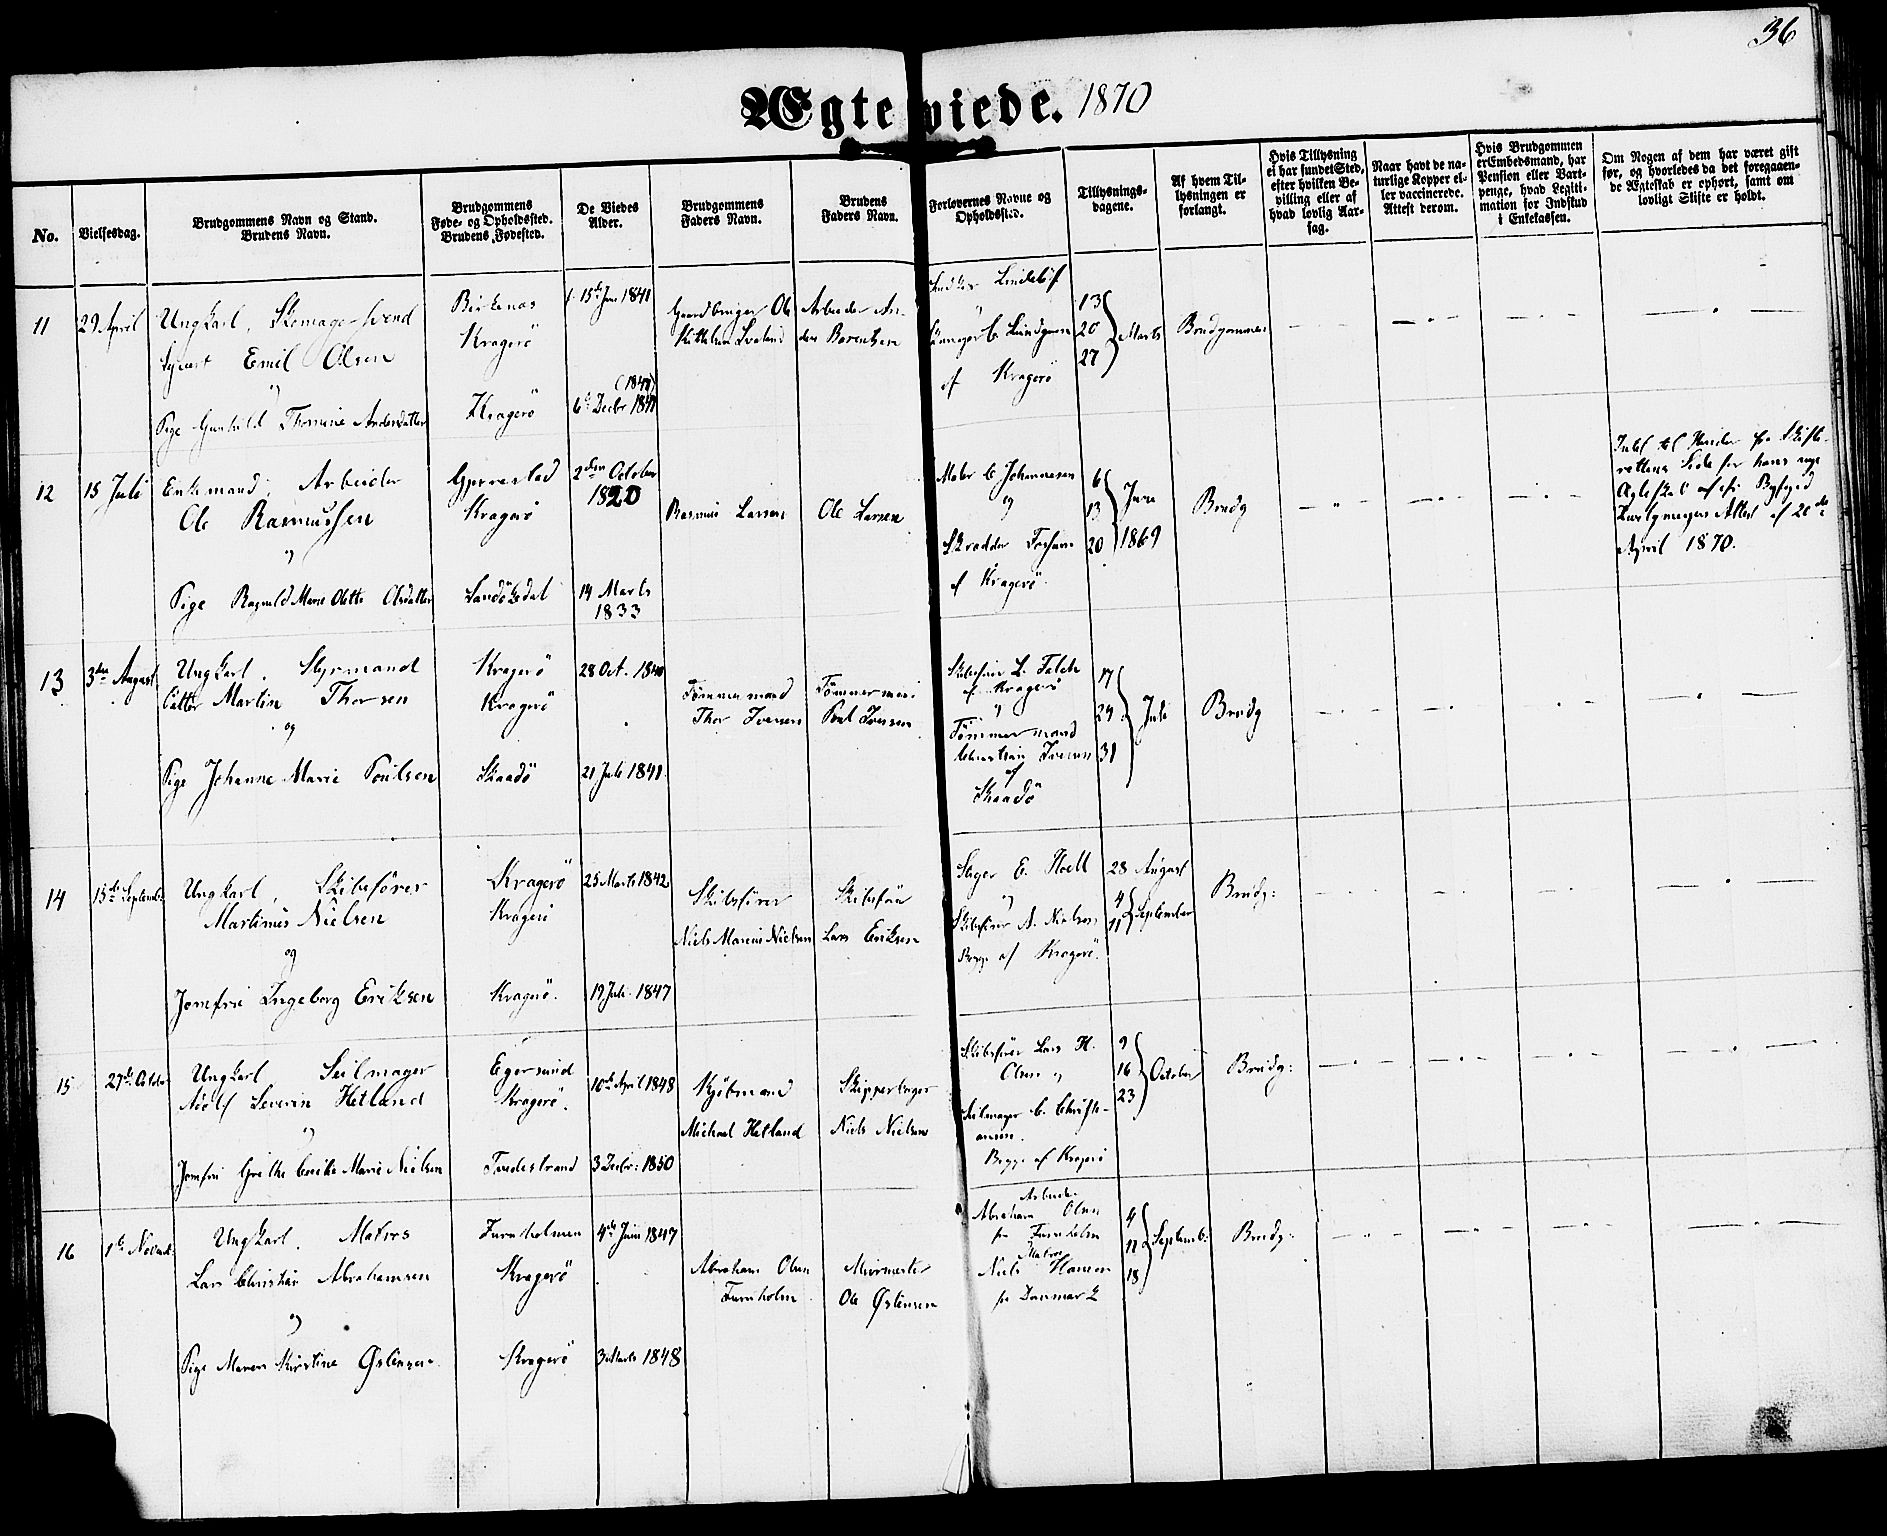 36
Ægteviede. 1870
No.
Vielsesdag.
Brudgommens Navn og Stand.
Brudens Navn.
Brudgommens
Føde- og Opholdssted.
Brudens Fødested.
De Viedes
Alder.
Brudgommens
Faders Navn.
Brudens
Faders Navn.
Forlovernes Navne og
Opholdssted.
Tillysnings-
dagene.
Af hvem Til-
lysningen er
forlangt.
Hvis Tillysning
ei har fundet Sted,
efter hvilken Be-
villing eller af
hvad lovlig Aar-
sag.
Naar havt de na-
turlige Kopper el-
ler vaccinerede.
Attest derom.
Hvis Brudgommen
er Embedsmand, har
Pension eller Vart-
penge, hvad Legiti-
mation for Indskud
i Enkekassen.
Om Nogen af dem har været gift
før, og hvorledes da det foregaaen-
de Ægteskab er ophørt, samt om
lovligt Skifte er holdt.
11
29 April
Ungkarl, Skomagersvend
Emil Olsen
og
Pige Gunhild Thomine Andersdatter
Birkenæs
Kragerö
Kragerö
15 Jan 1841
(1841)
6 Decbr 1841
Gaardbruger Ole
Arbeider An-
ders Berentsen
Lindelöf
af Kragerö
13
20
27
Marts
Brudgommen
12
15 Juli
Enkemand, Arbeider
Ole Rasmussen
og
Pige Ragnild Marie Olette Olsdatter
Gjerrestad
Kragerö
Sandökedal
2den October
1820
14 Marts
1833
Rasmus Larsen
Ole Larsen
Maler C Johannesen
og
Skrædder
af Kragerö
6
13
20
Juni
1869
Brudg
Intet til Hinder fra Skifte-
rettens Side for hans nye
Ægteskab
Attest af 20de
April 1870.
13
3die August
Ungkarl, Styrmand
Martin Thorsen
og
Pige Johanne Marie Poulsen
Kragerö
Kragerö
Skaadö
28 Oct. 1840
21 Juli 1841
Tömmermand
Thor Iversen
Tömmermand
Poul Iversen
Skibsförer L. Falch
af Kragerö
og
Tömmermand
Christian Iversen
af
Skaadö
17
24
31
Juli
Brudg
14
15de September
Ungkarl, Skibsförer
Martinius Nielsen
og
Jomfru Ingeborg Eriksen
Kragerö
Kragerö
Kragerö.
25 Marts 1842
19 Juli 1847
Skibsförer
Niels Marius Nielsen
Skibsförer
Lars Eriksen
E. Hoell
og
Skibsförer A. Nielsen
Begge af Kragerö.
28 August
4
11
September
Brudg:
15
27de October
Ungkarl Seilmager
Adolf Severin Hetland
og
Jomfru Grethe Marie Nielsen
Egersund
Kragerö.
Tvedestrand
10de April 1848
3 Decbr: 1850
Kjöbmand
Michael Hetland
Skipperborger
Niels Nielsen
Skibsförer Lars H.
Olsen og
Seilmager C. Christi-
ansen.
Begge af Kragerö
9
16
23
October
Brudg:
16
1te Novemb:
Ungkarl, Matros
Lars Christian Abrahamsen
og
Pige Maren Kirstine Østensen
Furuholmen
Kragerö
Kragerö
4de Juni 1847
3 Marts 1848
Abraham Olsen
Furuholm
Muurmester
Ole Østensen
Arbeider
Abraham Olsen
fra Furuholm
Matros
Niels Hansen
fra Danmark
4
11
18
Septemb:
Brudg: